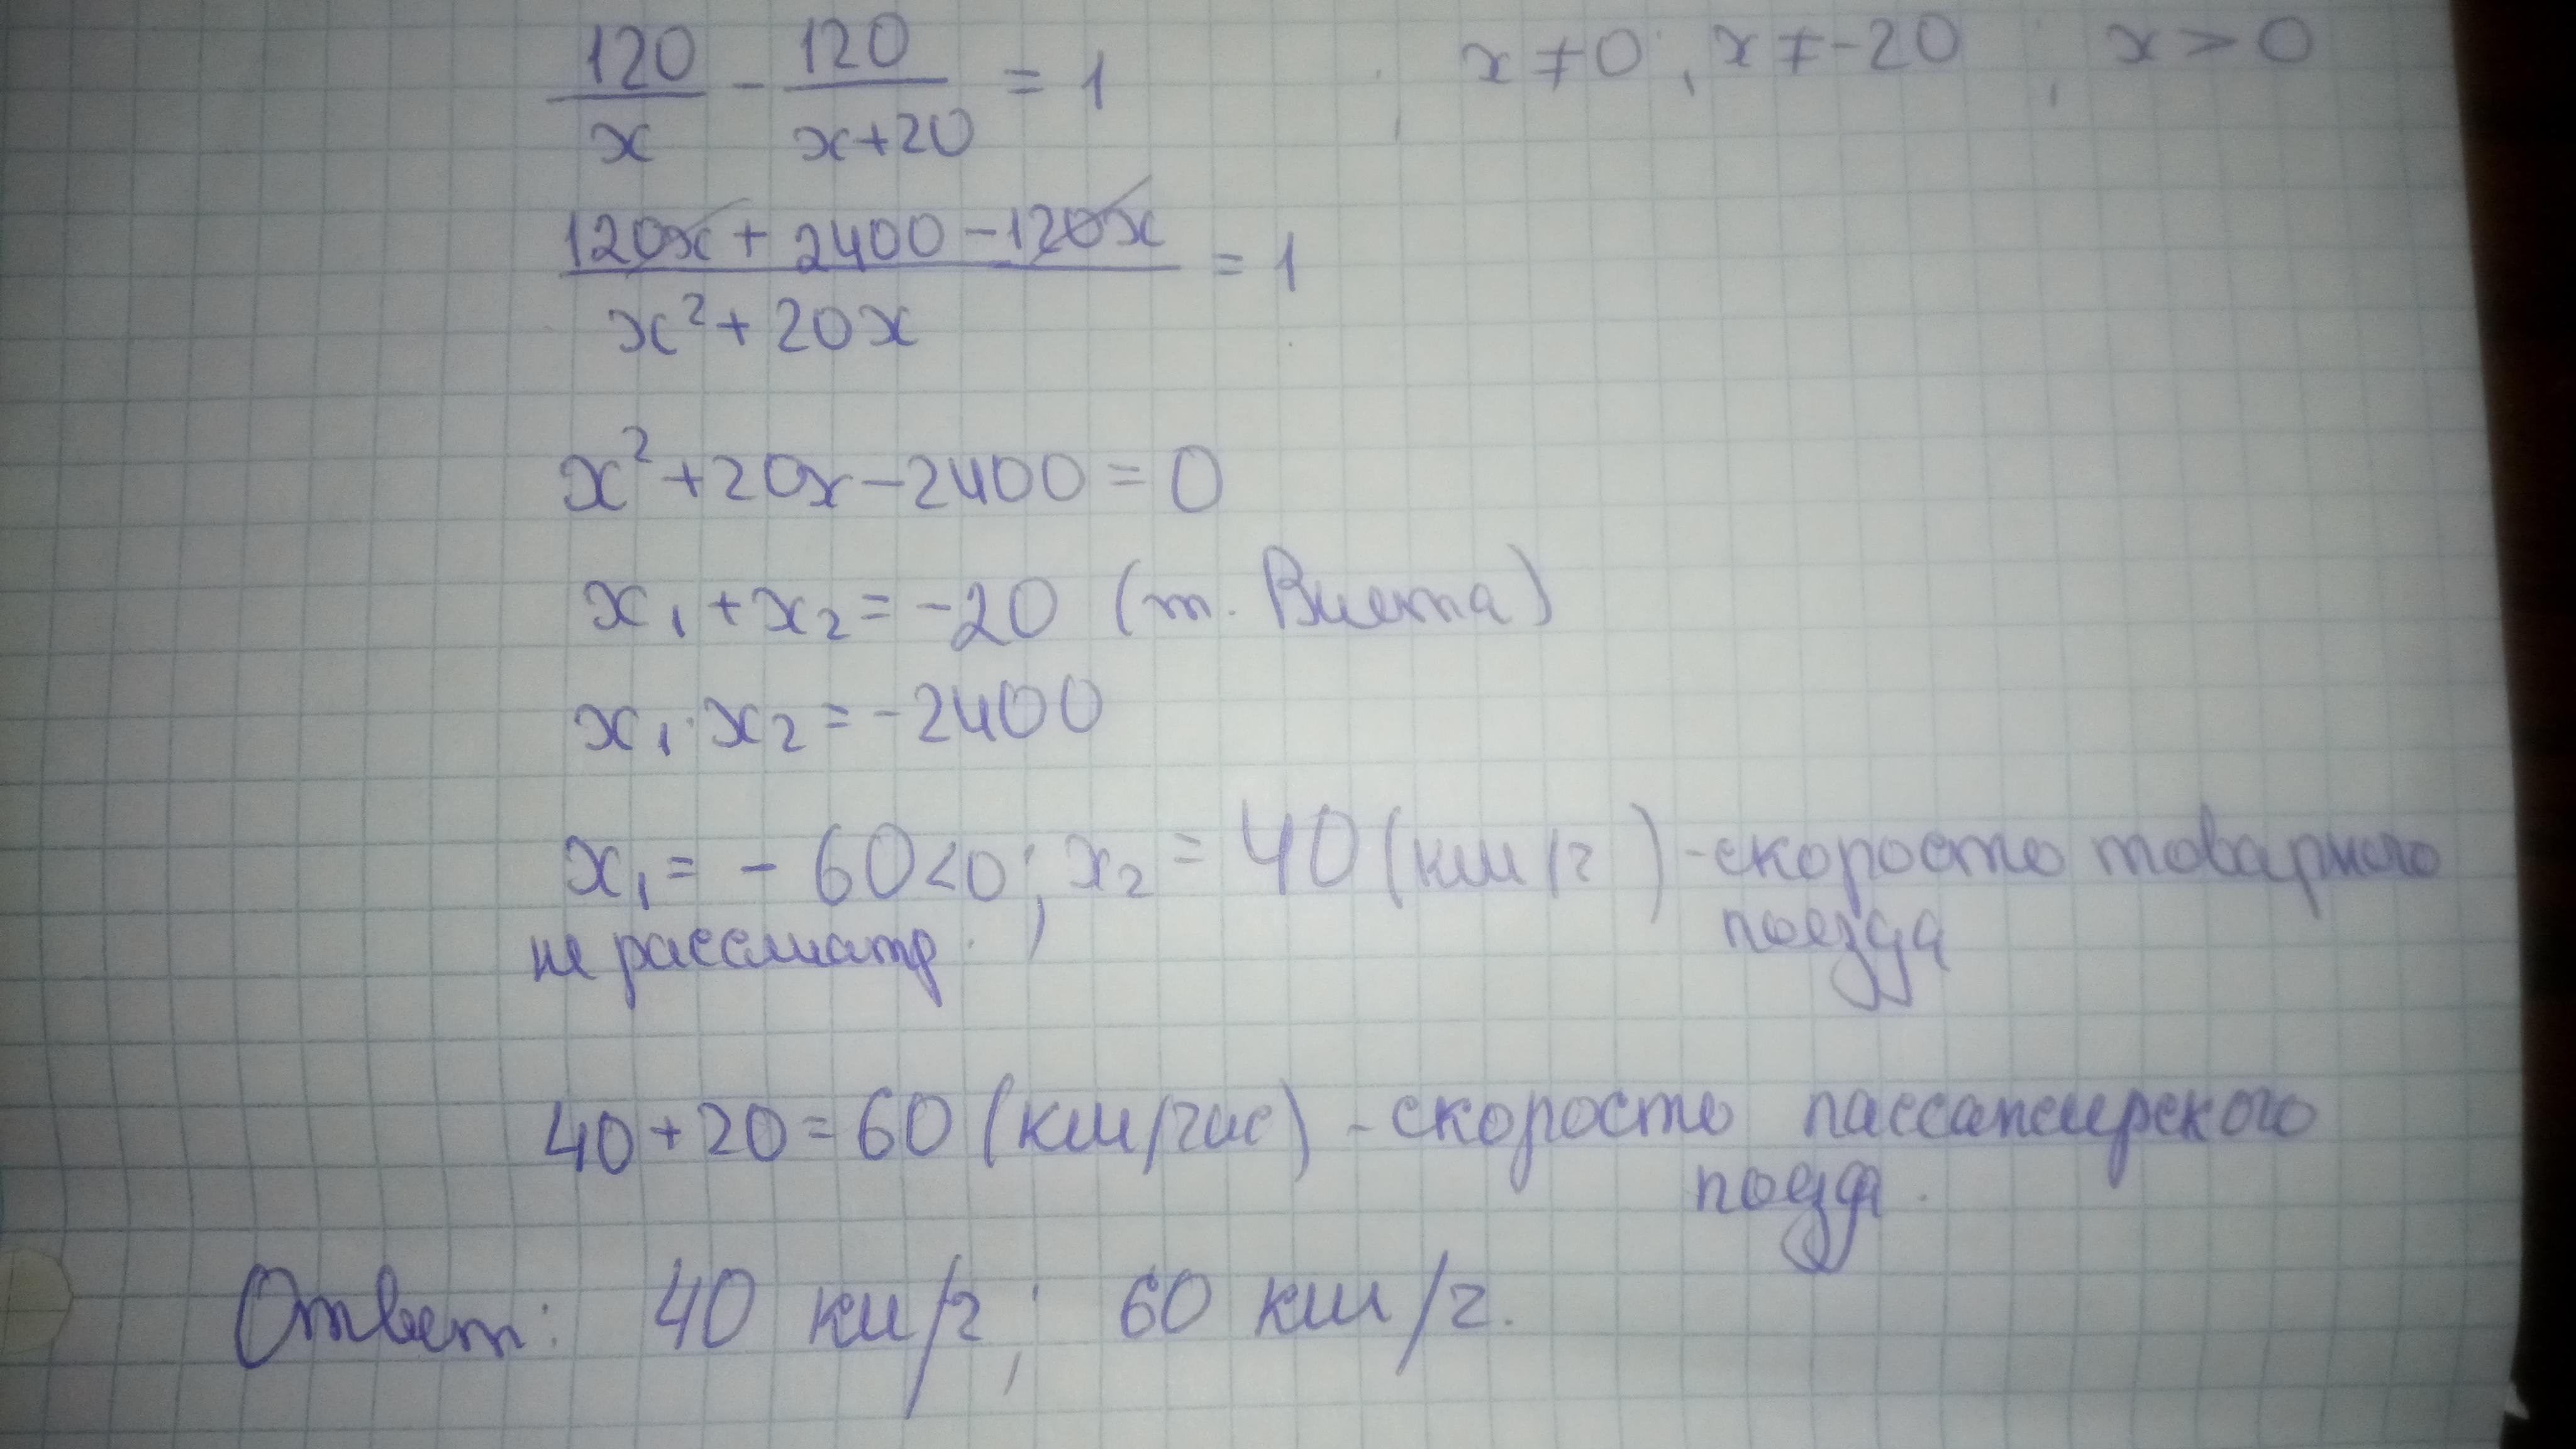 120/x - 120/(x+20) = 1 , x ≠ 0 , x ≠ -20 , x > 0
(120x + 2400 - 120x)/(x² + 20x) = 1
x² + 20x - 2400 = 0
x₁ + x₂ = -20 (т. Виета)
x₁ · x₂ = -2400
x₁ = - 60 < 0 ; x₂ = 40 (км/ч) - скорость товарного
не рассматр. поезда
40 + 20 = 60 (км/час) - скорость пассажирского
поезда.
Ответ: 40 км/ч ; 60 км/ч.